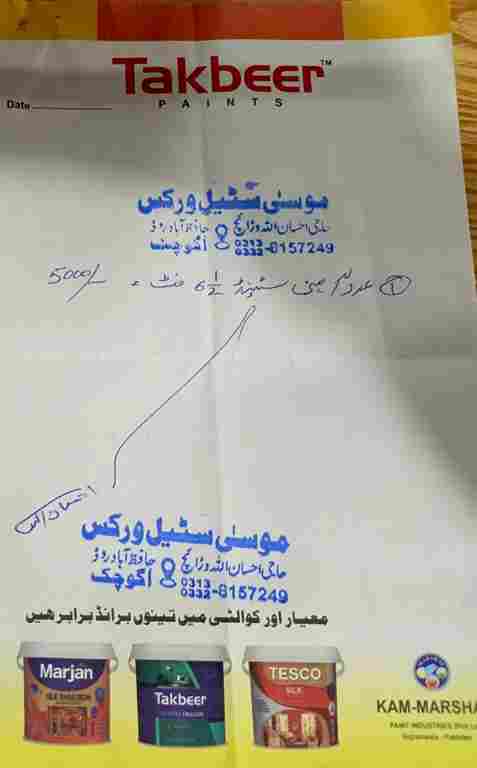 Takbeer™
PAINTS
Date
موسیٰ سٹیل ورکس
حاجی احسان اللہ وڑائچ حافظ آباد روڈ
0313
0332-8157249 اگوچک
① عدد سٹینڈ 6 1/2 فٹ = 5000/-
موسیٰ سٹیل ورکس
حاجی احسان اللہ وڑائچ حافظ آباد روڈ
0313
0332-8157249 اگوچک
معیار اور کوالٹی میں تینوں برانڈ برابر ھیں
Marjan
Takbeer
TESCO
SILK
KAM-MARSHA
PAINT INDUSTRIES
Gujranwala - Pakistan